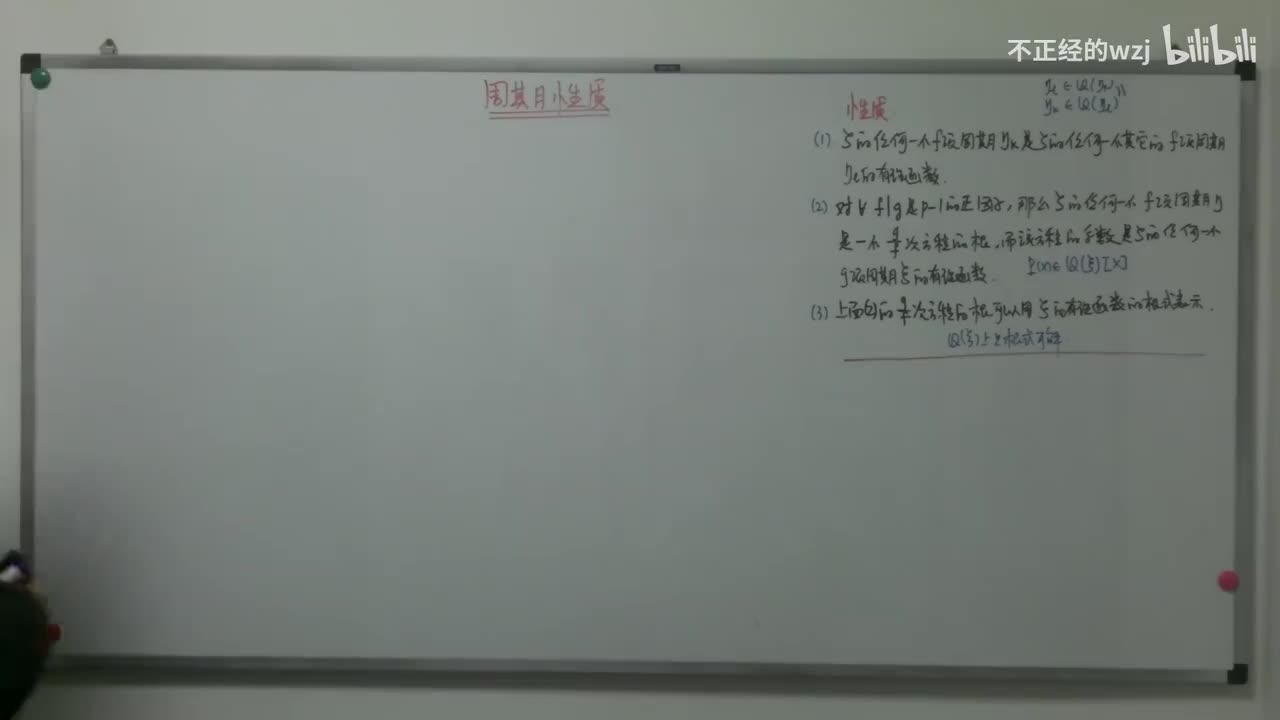 不正经的wzj bilibili
周期性质
性质
η_l ∈ Q(η_k)
η_k ∈ Q(η_l)
(1) ζ的任何一个f项周期η_k是ζ的任何一个其它的f项周期
η_l的有理函数.
(2) 对∀ f|g是p-1的正因子,那么ζ的任何一个f项周期η
是一个g/f次方程的根,而该方程的系数是ζ的任何一个
g项周期ξ的有理函数. P(x)∈Q(ξ)[X]
(3) 上面的g/f次方程的根可以用ξ的有理函数的根式表示.
Q(ξ)上是根式可解